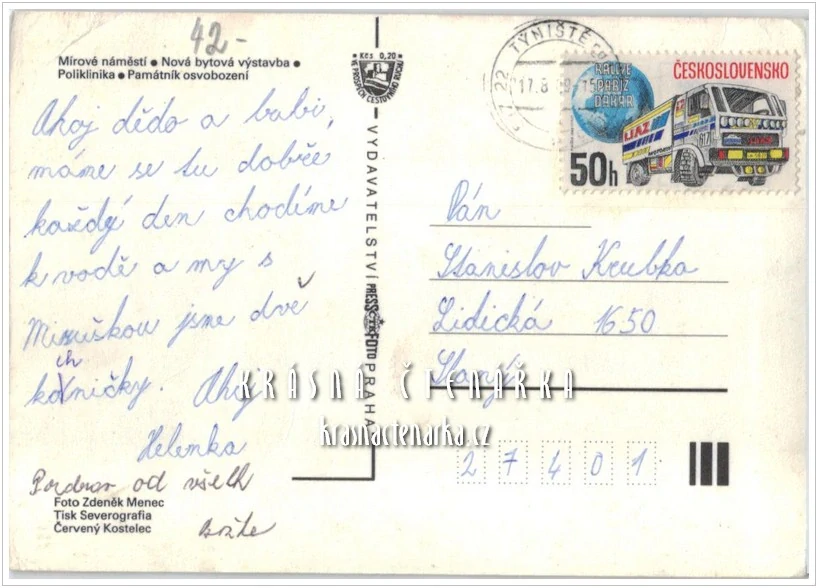 42-
Mírové náměstí ● Nová bytová výstavba ●
Poliklinika ● Památník osvobození
Ahoj dědo a babi,
máme se tu dobře
každý den chodíme
k vodě a my s
Miruškou jsme dvě
kachničky. Ahoj
Helenka
Pozdrav od všech
Foto Zdeněk Menec
Tisk Severografia
Červený Kostelec
Kčs 0,20
VE PROSPĚCH CESTOVNÍHO RUCHU
VYDAVATELSTVÍ PRESSFOTO PRAHA
TÝNIŠTĚ
22
17.8
RALLYE
PAŘÍŽ
DAKAR
ČESKOSLOVENSKO
LIAZ
50h
Pán
Stanislav Krubka
Lidická 1650
Slaný
27401
KRÁSNÁ ČTENÁŘKA
krasnactenarka.cz